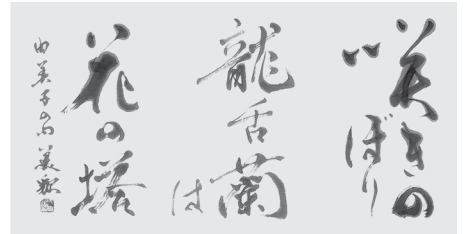 咲きの
ぼり
龍舌蘭
は
花の塔
由美子の句 美